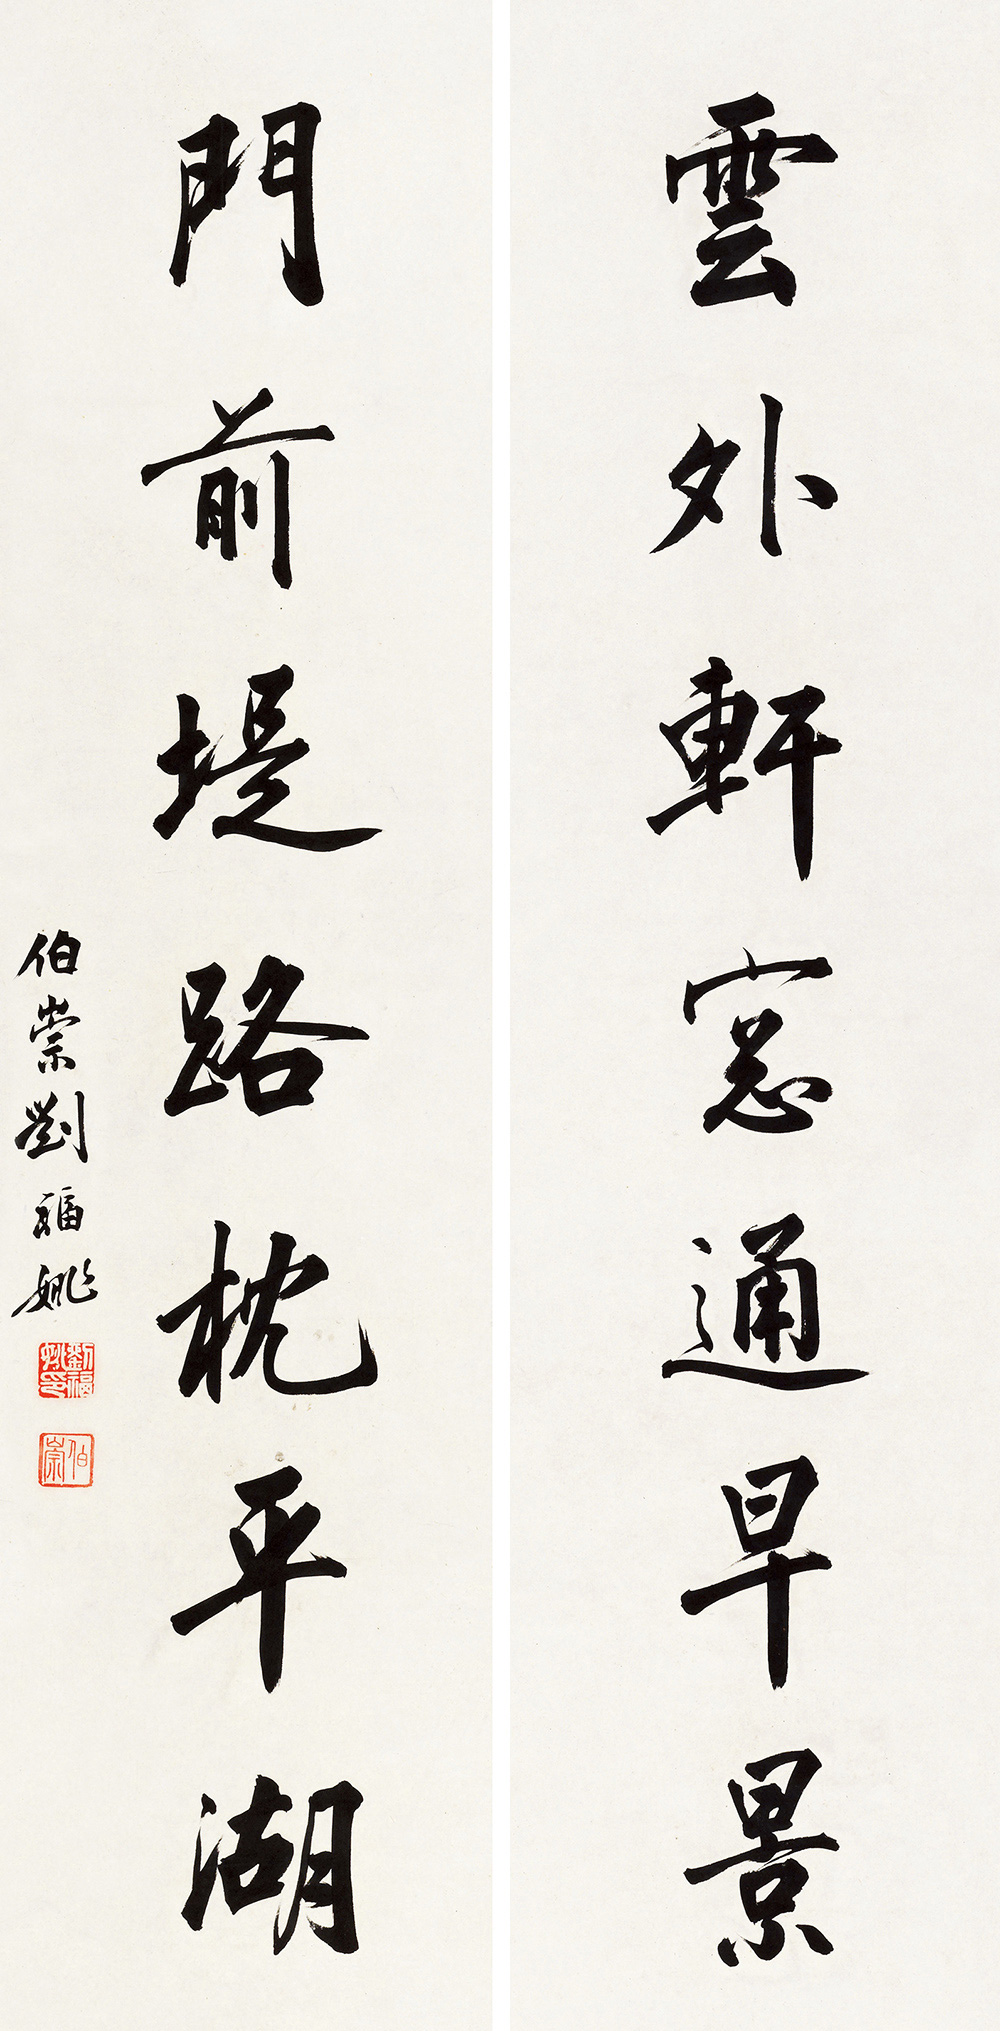 雲外軒窓通早景
門前堤路枕平湖
伯崇劉福姚
劉福姚印
伯崇